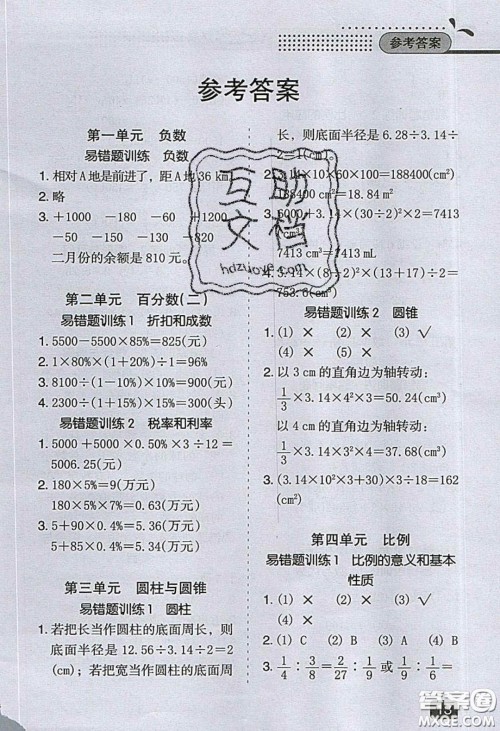 参考答案
参考答案
第一单元 负数
易错题训练 负数
1. 相对A地是前进了，距A地36 km
2. 略
3. +1000 -180 -60 +1200
-50 -150 -130 -320
二月份的余额是 810 元。
第二单元 百分数(二)
易错题训练1 折扣和成数
1. 5500-5500×85%=825(元)
2. 1×80%×(1+20%)÷1=96%
3. 8100÷(1-10%)×10%=900(元)
4. 2300÷(1+15%)×15%=300(头)
易错题训练2 税率和利率
1. 5000+5000×0.50%×3÷12=
5006.25(元)
2. 180×5%=9(万元)
180×5%×7%=0.63(万元)
3. 5+90×0.4%=5.36(万元)
5+85×0.4%=5.34(万元)
第三单元 圆柱与圆锥
易错题训练1 圆柱
1. 若把长当作圆柱的底面周长，则
底面半径是 12.56÷3.14÷2=2
(cm)；若把宽当作圆柱的底面周
长，则底面半径是 6.28÷3.14÷
2=1(cm)。
×10×60×100=188400(cm²)
188400 cm²=18.84 m²
3. 6000+3.14×(30÷2)²×2=7413
7413 cm³=7413 mL
3.14×(8÷2)²×(13+17)÷2=
753.6(cm³)
易错题训练2 圆锥
1. (1) × (2) × (3) √
(4) × (5) ×
2. 以 3 cm 的直角边为轴转动：
1/3×3.14×4²×3=50.24(cm³)
以 4 cm 的直角边为轴转动：
1/3×3.14×3²×4=37.68(cm³)
3. 3.14×(10²×3+30)×3÷18=
(cm²)
第四单元 比例
易错题训练1 比例的意义和基本
性质
1. (1) × (2) × (3) √
(4) ×
2. (1) D (2) C (3) A (4) B
3. 1/4：3/8=2/27：1/9 或 1/9：1/6=
互助
文档
hdzuoye.com
答案圈
MXQE.COM